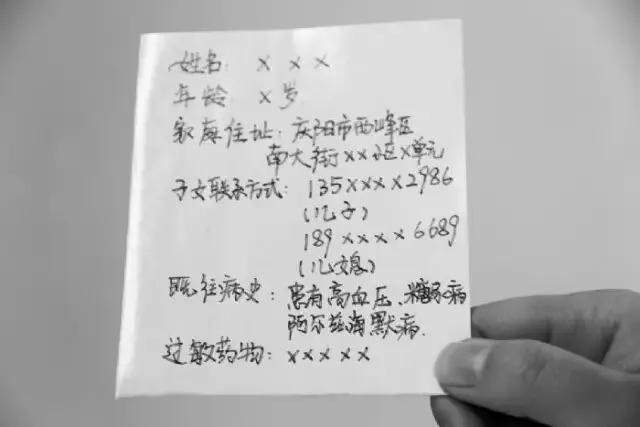 姓名: × × ×
年龄: ×岁
家庭住址: 庆阳市西峰区
南大街××小区×单元
子女联系方式: 135××××2986
(儿子)
189××××6689
(儿媳)
既往病史: 患有高血压、糖尿病
阿尔兹海默病.
过敏药物: ×××××